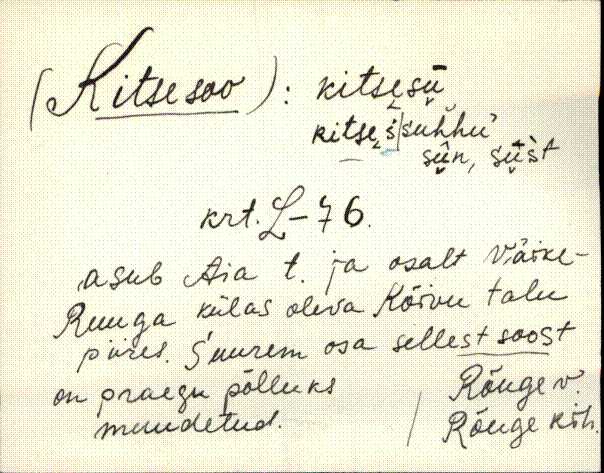 (Kitsesoo): kitse̬sū̬
kitse̬ś|suh̆h̆ù
sū̬n, sū̬s̀t
krt. L-76.
asub Aia t. ja osalt Väike-
Ruuga külas oleva Kõivu talu
piires. Suurem osa sellest soost
on praegu põlluks
muudetud.
Rõuge v.
Rõuge kih.